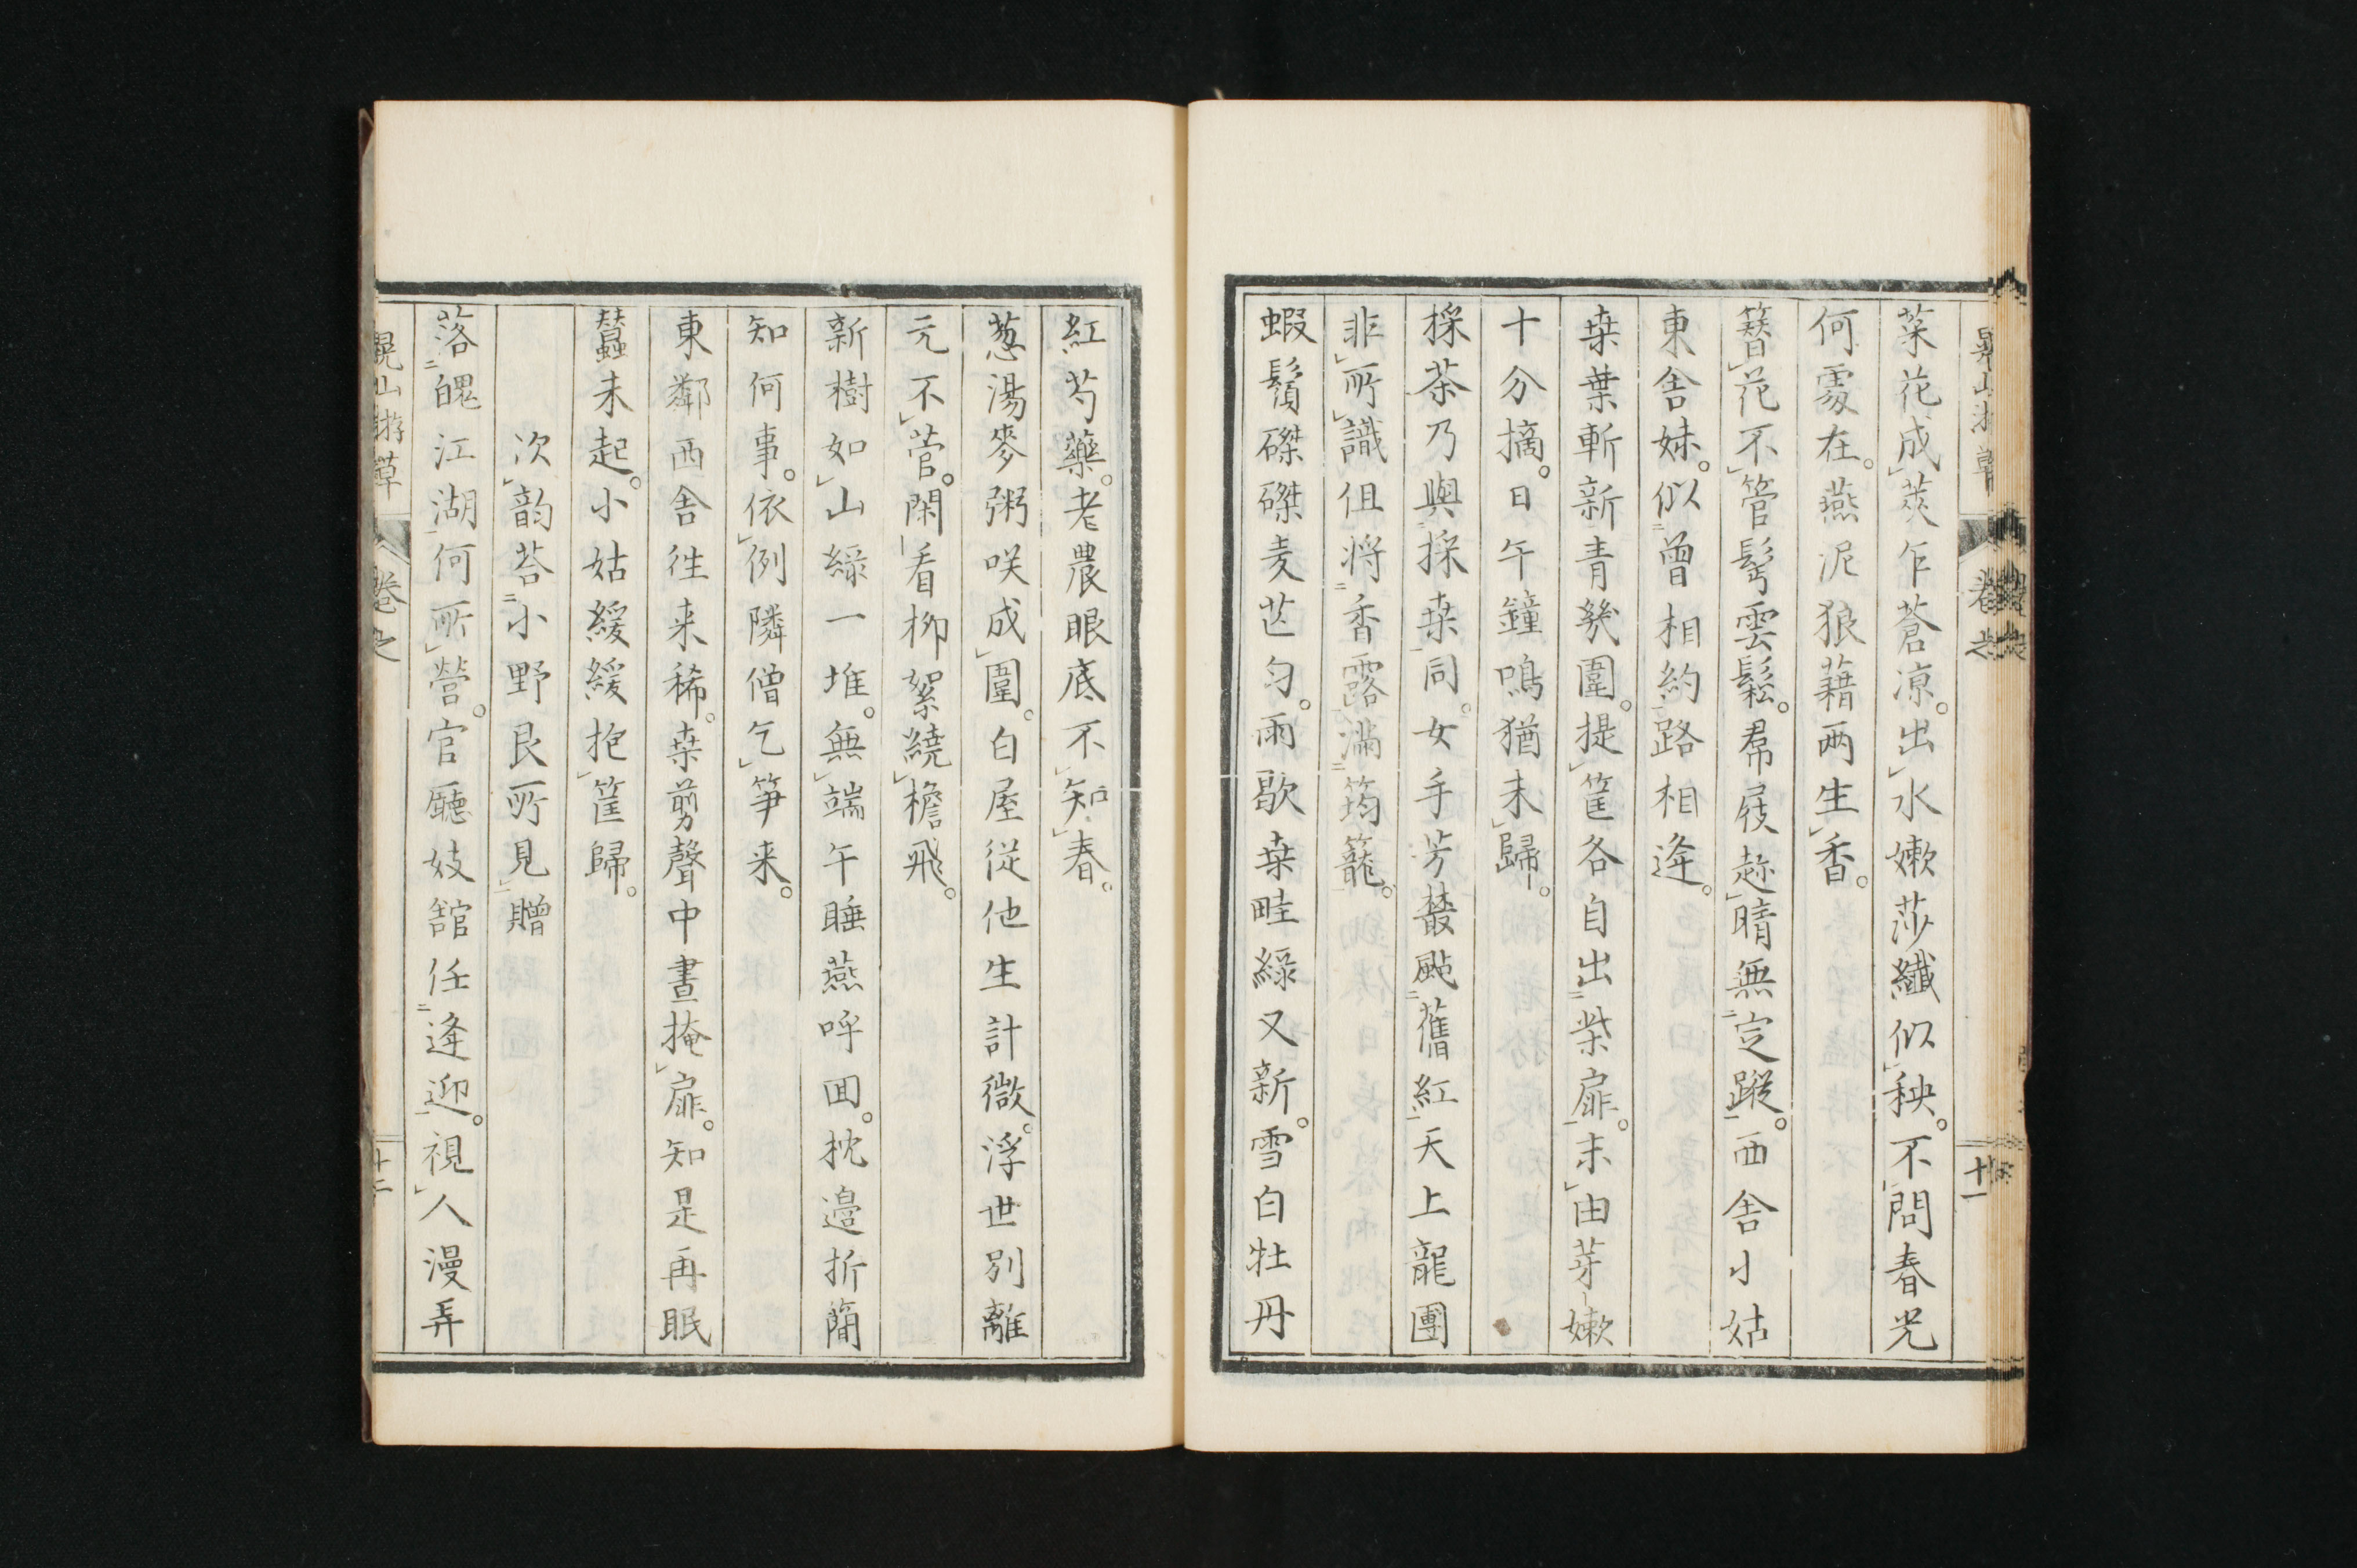 菜花成莢乍蒼凉。出水嫩莎纖似秧。不問春光
何處在。燕泥狼藉両生香。
簪花不管髩雲鬆。帬屐趂晴無定蹤。西舎小姑
東舎妹。似曾相約路相逢。
桒葉斬新青幾圍。提筐各自出柴扉。未由芽嫩
十分摘。日午鐘鳴猶未歸。
採茶乃與採桒同。女手芳叢颭舊紅天上龍團
非所識但將香露滿筠籠。
蝦鬚磔磔麦芒匀。雨歇桒畦緑又新。雪白牡丹
十一
紅芍藥。老農眼底不知春。
葱湯麥粥咲成圍。白屋従他生計微。浮世別離
元不菅。閑看栁絮繞檐飛。
新樹如山緑一堆。無端午睡燕呼囬。枕邉折簡
知何事。依例隣僧乞笋来。
東鄰西舎徃来稀。桒剪聲中晝掩扉。知是再眠
蠶未起。小姑緩緩抱筐歸。
次韵荅小野艮所見贈
落魄江湖何所營。官廳妓舘任逢迎。視人漫弄
晃山游草
卷之
十二